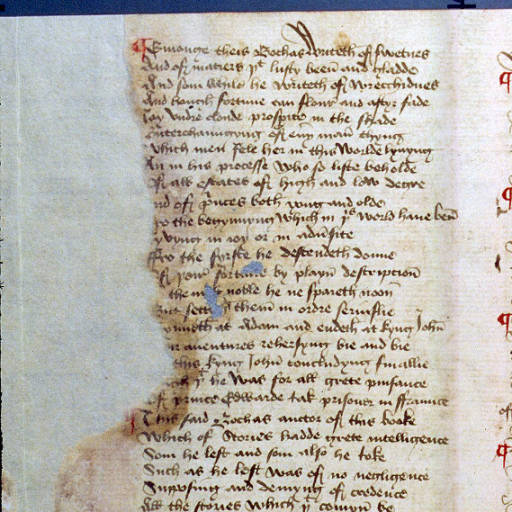 Emonge theis Bochas writeth of swetnes
And of matiers þt lusty been and gladde
And som while he writeth of wrecchidnes
And hough fortune can flour and aftyr fade
Joy vndre cloude prosperite in the shade
Enterchaungyng of euery mann thyng
Which men fele her in this worlde lyvyng
in his processe who so liste beholde
Of all estates of high and low degre
nd of princes both yong and olde
the begynnyng which in þs world haue been
yvyng in ioy or in aduersite
the fyrste he descendeth doune
of fortune by playn description
the noble he ne spareth noon
But sett them in ordre seruislie
at Adam and endeth at kyng John
aventures rehersyng bie and bie
this kyng John concludyng finallie
þt he was for all grete puisaunce
Of prince Edwarde tak prisoner in ffraunce
This said Bochas auctor of this booke
Which of stories hadde grete intelligence
Som he left and som also he toke
Such as he left was of no necligence
Supposing and demyng of credence
All the stories which þt comyn be